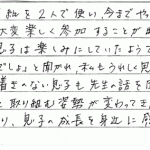 私を2人で使い、今までや
大変楽しく参加することが出
息子は楽しみにしていたようで
でしょ」と聞かれ、私もうれしく思
着きのない息子も先生の話を
と取り組む姿勢が変わってき
り、息子の成長を身近に感